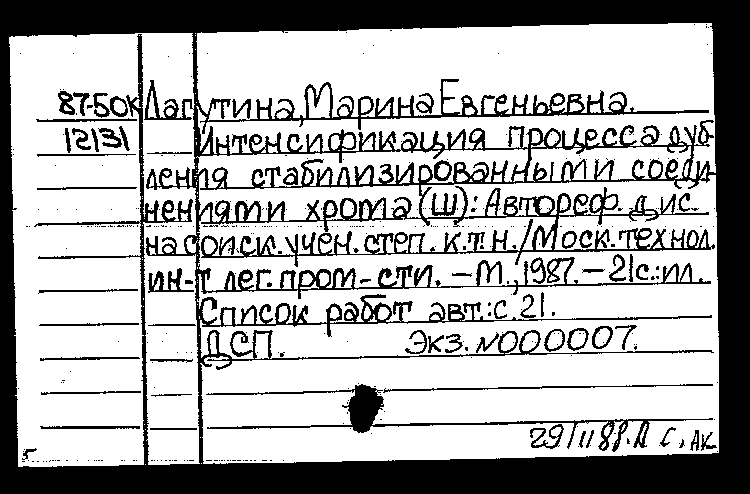 87-50к Лагутина, Марина Евгеньевна.
12131 Интенсификация процесса дуб-
ления стабилизированными соеди-
нениями хрома (Ш): Автореф. дис.
на соиск. учен. степ. к.т.н. /Моск. технол.
ин-т лег. пром-сти. – М., 1987. – 21с.: ил.
Список работ авт.: с. 21.
ДСП. Экз. №000007.
29/II 88.
5